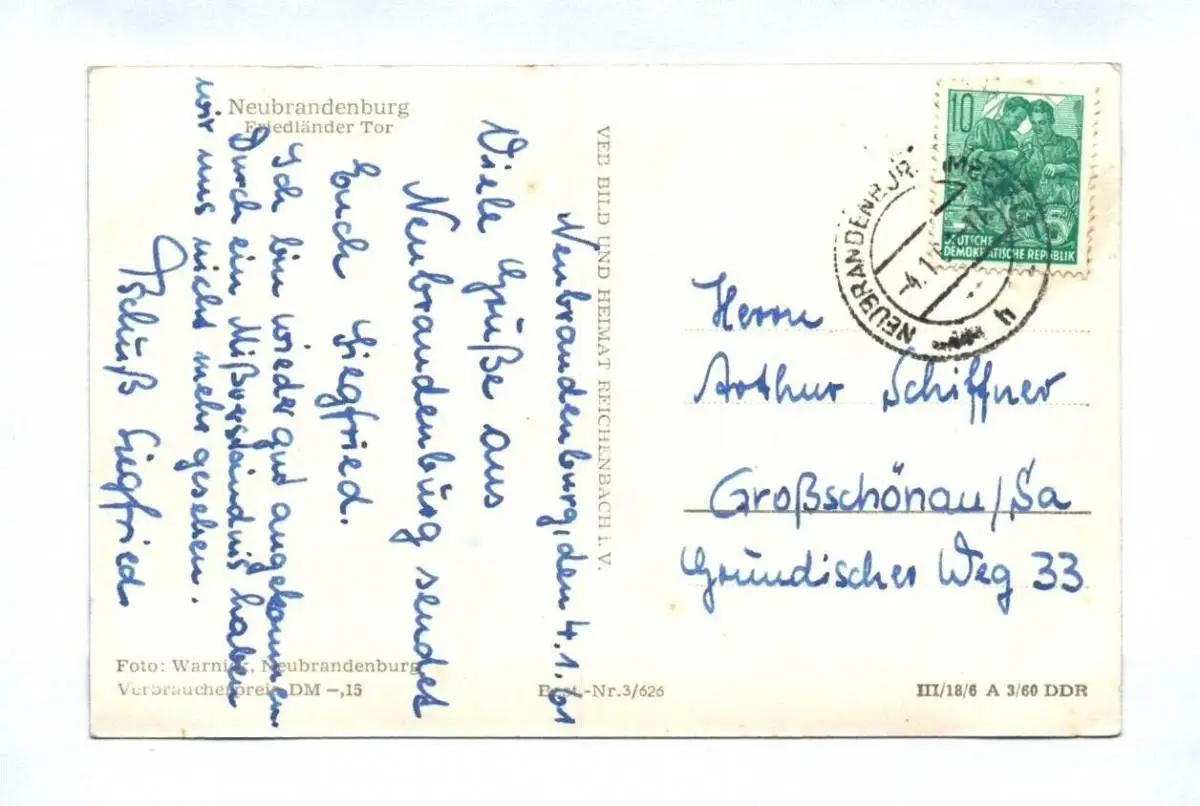 Neubrandenburg
Friedländer Tor
Neubrandenburg, den 4.1.61
Viele Grüße aus
Neubrandenburg sendet
Euch Siegfried.
Ich bin wieder gut angekommen.
Durch ein Mißverständnis haben
wir uns nicht mehr gesehen.
Tschüß Siegfried
VEB BILD UND HEIMAT REICHENBACH i. V.
10
DEUTSCHE
DEMOKRATISCHE REPUBLIK
NEUBRANDENBURG
4.1.
Herrn
Arthur Schiffner
Großschönau/Sa
Gründischer Weg 33
Foto: Warnick, Neubrandenburg
Verbraucherpreis DM -,15
Best.-Nr. 3/626
III/18/6 A 3/60 DDR